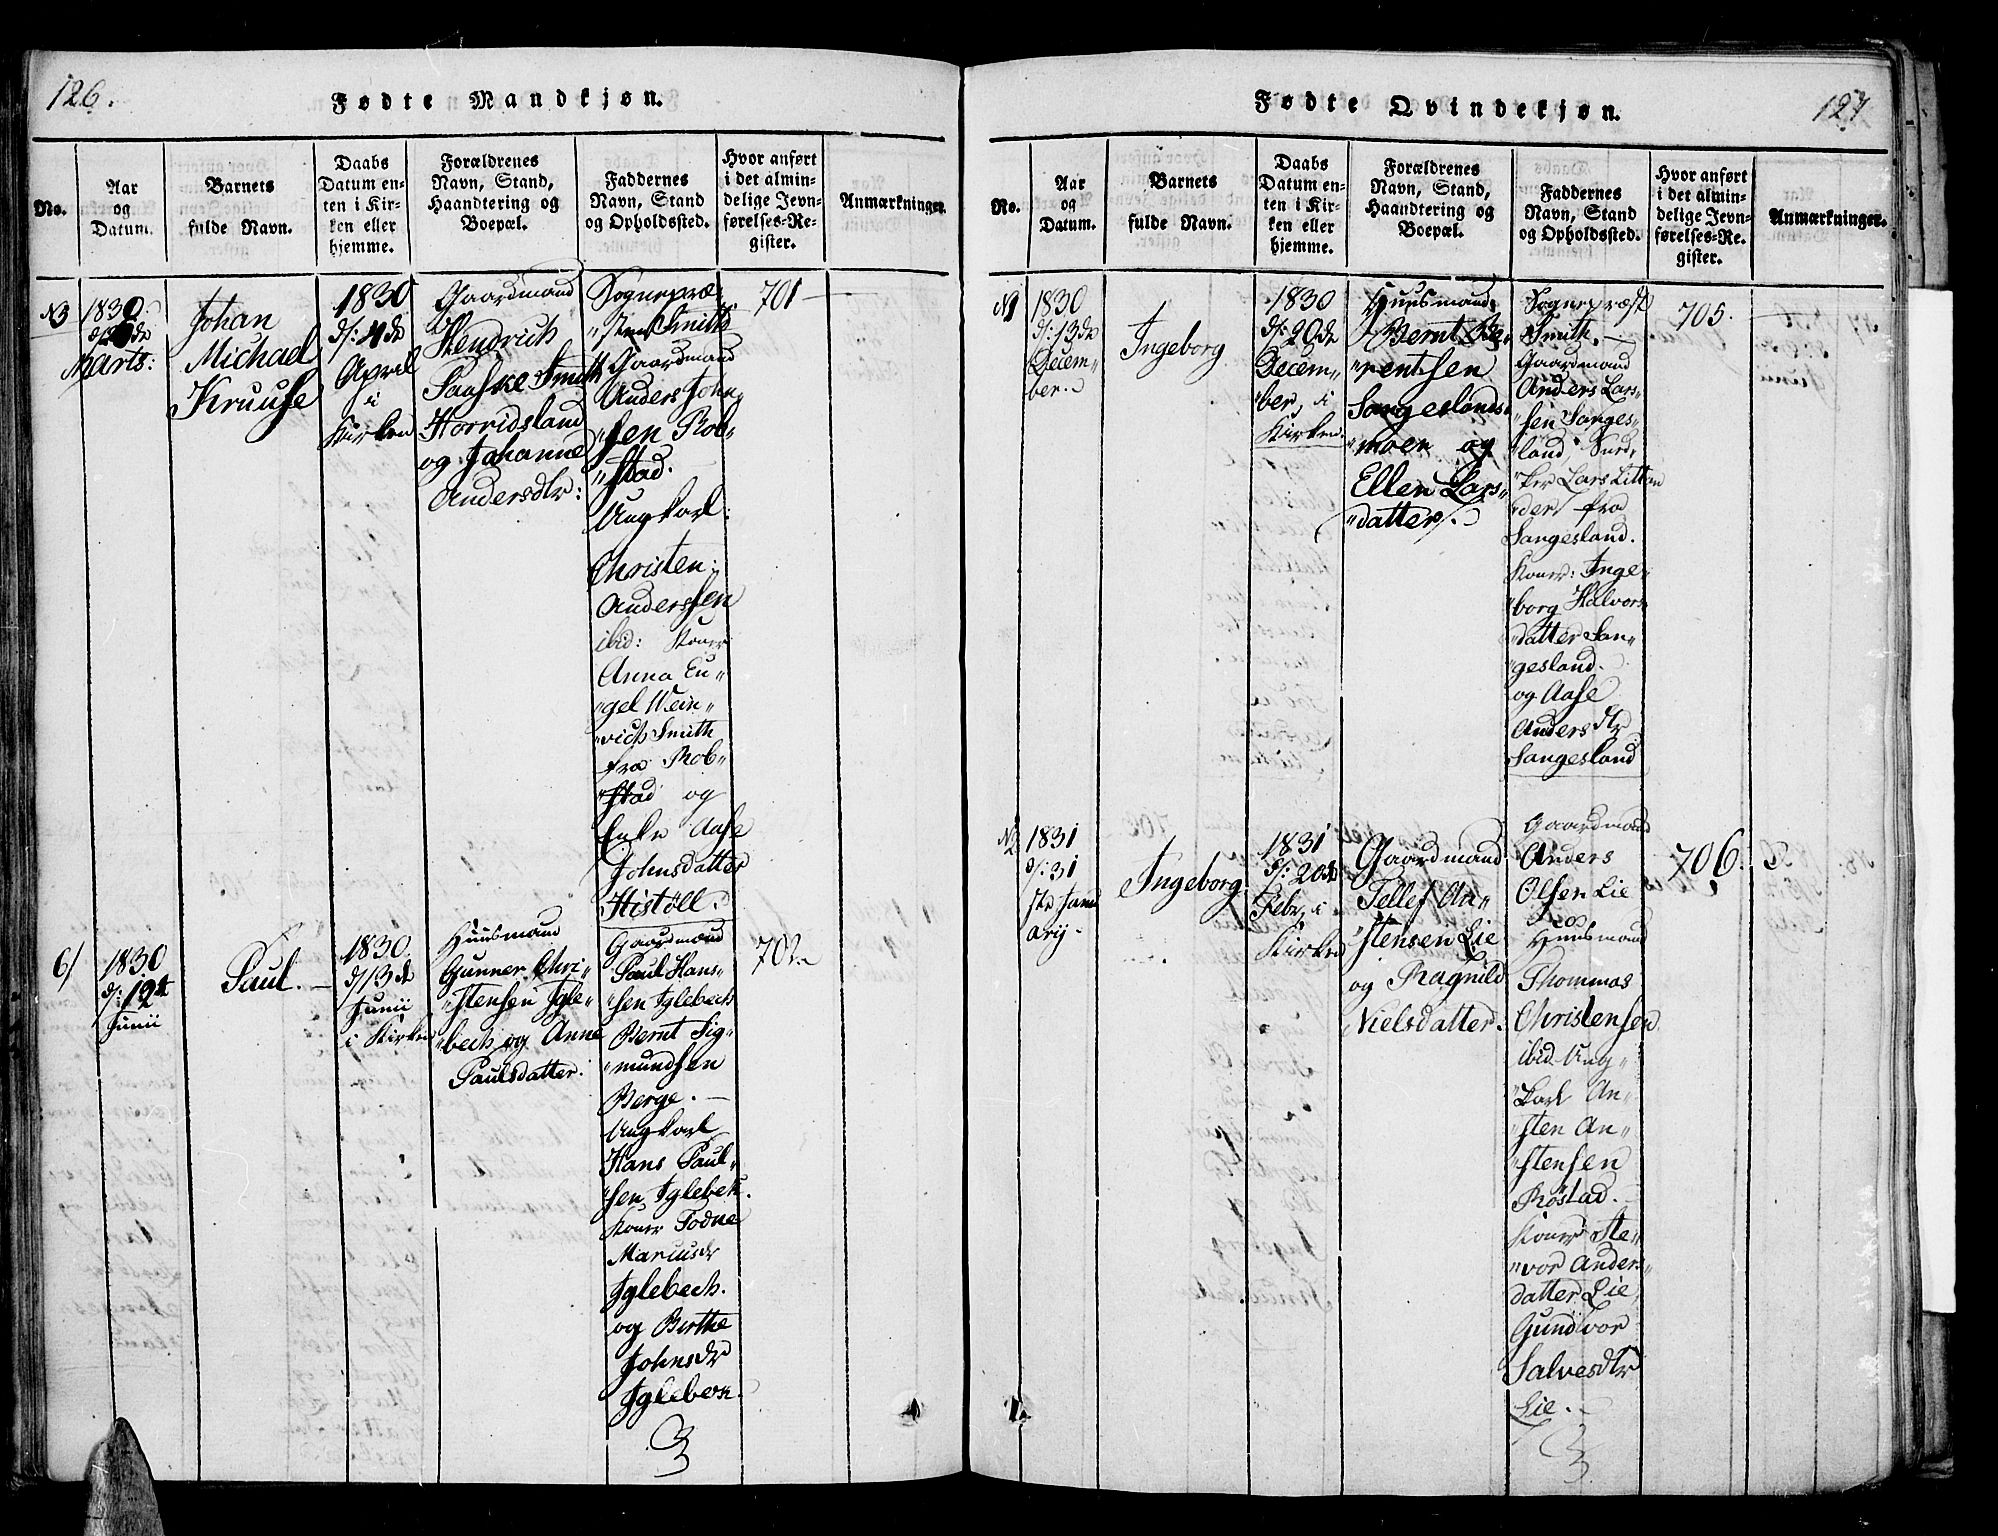 126.
Fødte Mandkjøn.
No.
Aar
og
Datum.
Barnets
fulde Navn.
Daabs
Datum en-
ten i Kir-
ken eller
hjemme.
Forældrenes
Navn, Stand,
Haandtering og
Boepæl.
Faddernes
Navn, Stand
og Opholdssted.
Hvor anført
i det almin-
delige Jevn-
førelses-Re-
gister.
Anmærkninger.
1830
Marts:
Johan
Michael
Kruuse
1830
d/: 4de
April
i
Kirken
Gaardmand
Hendrich
Paaske Smith
Horridsland
og Johanne
Andersdtr:
Sognepræ„
„sten Smith
Gaardmand
Anders John„
„sen Rob„
„stad.
Ungkarl:
Christen:
Anderssen
ibid: Koner
Anna En„
„gel Wein„
„rich Smith
fra Rob„
„stad og
Enke Aase
Johnsdatter
Histöll.
701
6/
1830
d/: 12te
Junii
Paul.
1830
d/13de
Junii
i Kirken
Huusmand
Gunner Chri„
„stensen Igle„
„bech og Anne
Paulsdatter.
Gaardmand
Paul Hans„
„sen Iglebech
Bernt Sig„
„mundsen
Berge.
Ungkarl
Hans Paul„
„sen Iglebek.
Koner Todne
Marcusdr
Iglebech.
og Birthe
Johnsdr
Iglebek.
702.
127
Fødte Qvindekjøn.
No.
Aar
og
Datum.
Barnets
fulde Navn.
Daabs
Datum en-
ten i Kir-
ken eller
hjemme.
Forældrenes
Navn, Stand,
Haandtering og
Boepæl.
Faddernes
Navn, Stand
og Opholdssted.
Hvor anført
i det almin-
delige Jevn-
førelses-Re-
gister.
Anmærkninger.
N1
1830
d/: 13de
Decem„
„ber.
Ingeborg
1830
d/: 20de
Decem„
„ber, i
Kirken.
Huusmand
Bernt Be„
„rentsen
Sangeslands„
„moen og
Ellen Lars„
„datter.
Sognepræst
Smith.
Gaardmand
Anders Lars„
„sen Sanges„
„land,
Lars
fra
Sangesland.
Koner: Inge„
„borg Halvors„
„datter San„
„gesland.
og Aase
Andersdtr
Sangesland
705.
N2
1831
d/: 31
ste Janu
arij.
Ingeborg.
1831
d/: 20de
Febr, i
Kirken
Gaardmand
Tellef An„
„stensen Lie
og Ragnild
Nielsdatter.
Gaardmand
Anders
Olsen Lie
Huusmand
Thommas
Christensen
ibid. Ung„
„karl An„
„sten An„
„stensen
Röstad.
Koner Ste„
„vor Anders„
datter Lie
Gundvor
Salvesdtr
Lie.
706.